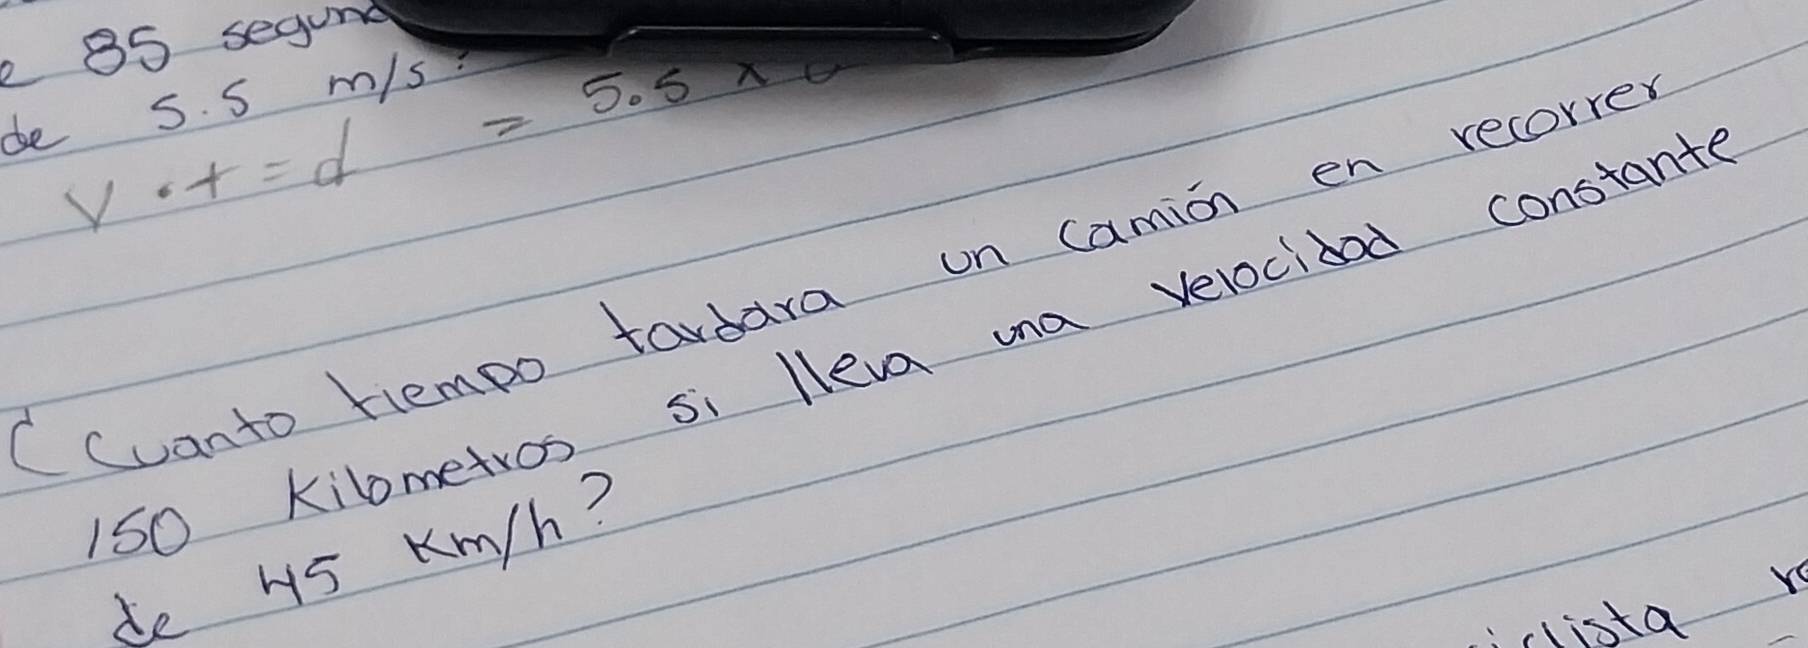 85 segund
de 5.5 m/s?
V · t = d = 5.5 x
¿Cuanto tiempo tardara un camión en recorrer
150 Kilometros si lleva una velocidad constante
de 45 Km/h?